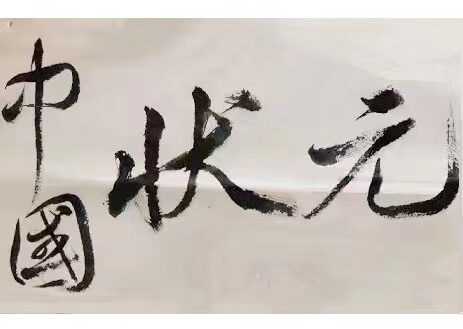 中國
状元